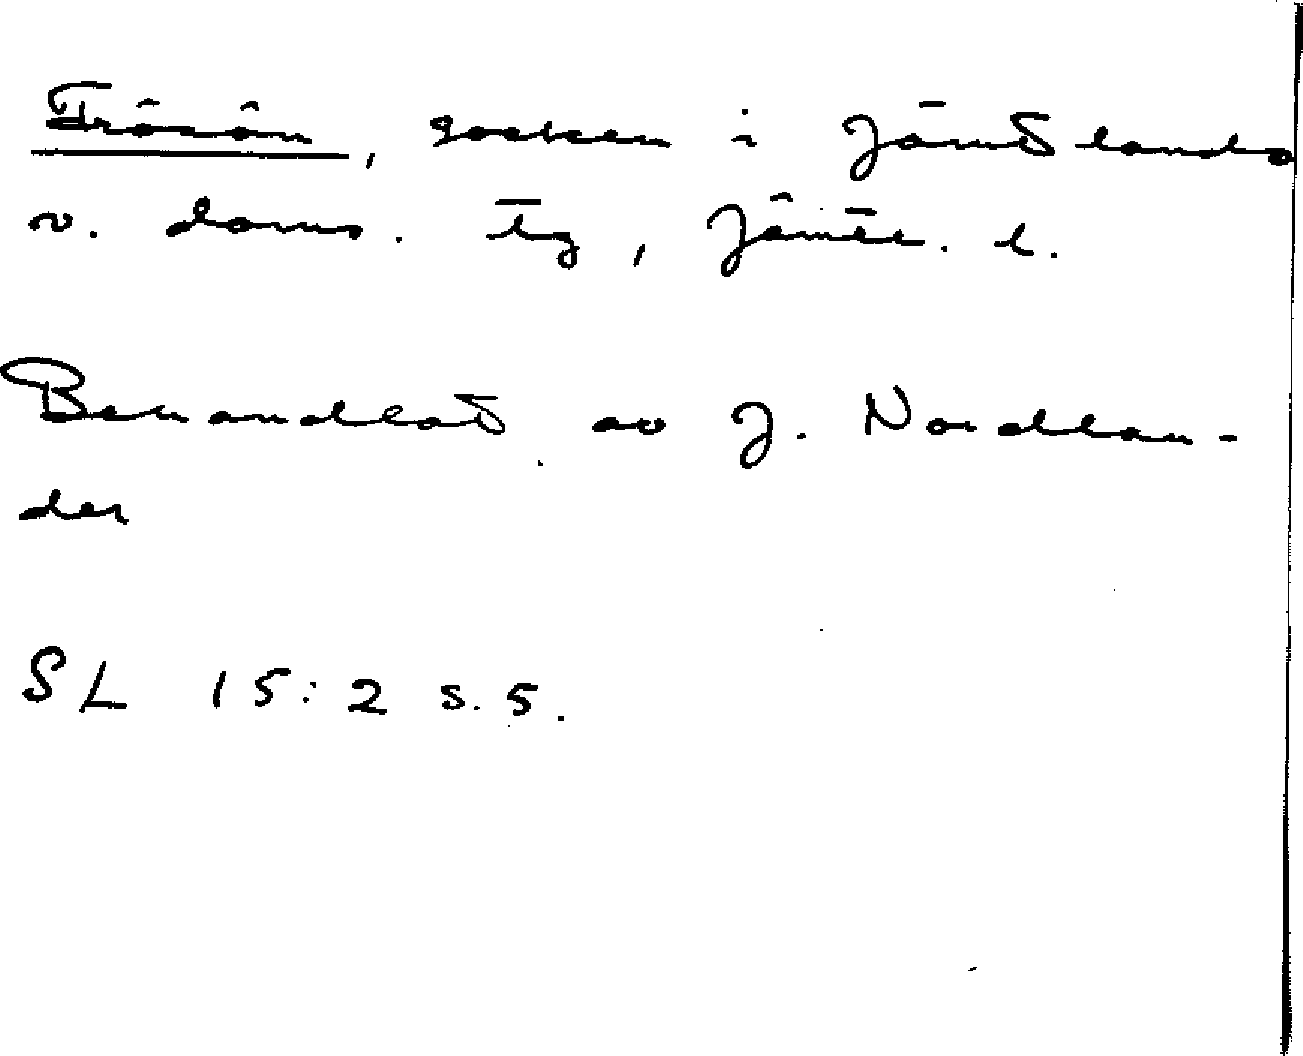 Frösön, socken i Jämtlands
v. doms. tg, Jämtl. l.
Behandlat av J. Nordlan-
der
SL 15:2 s. 5.